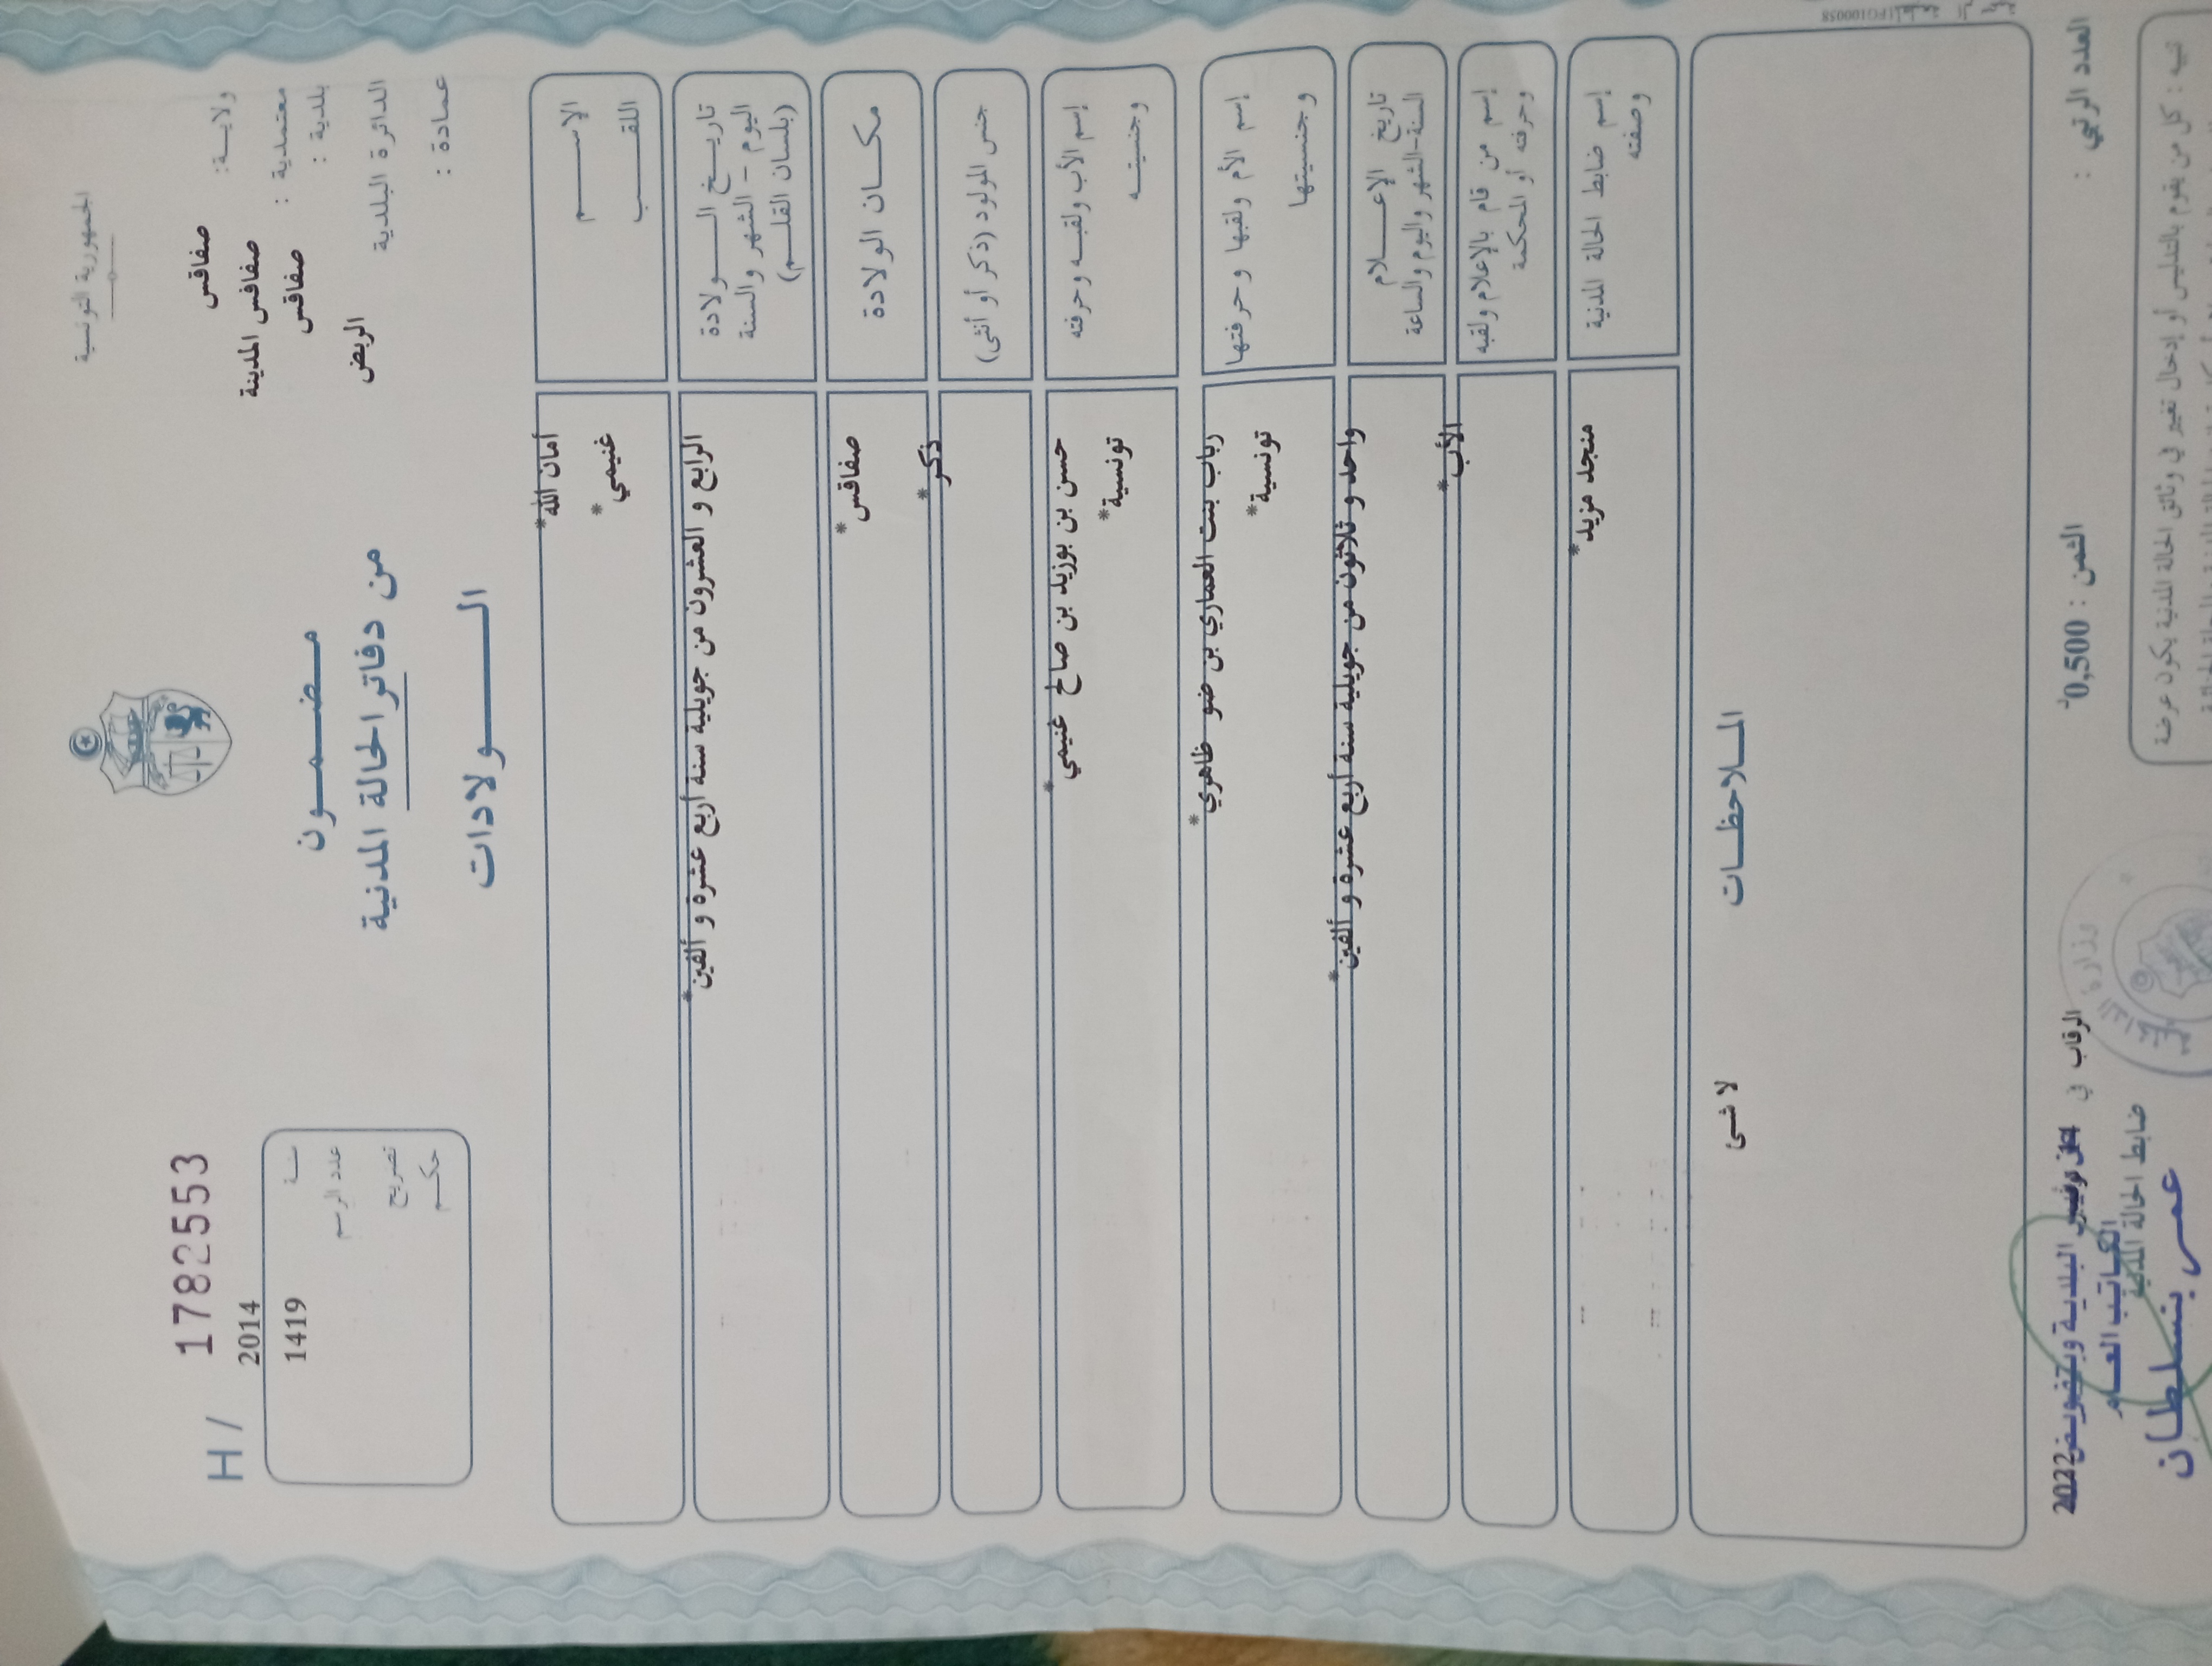 الجمهورية التونسية
ولايـة: صفاقس
معتمدية : صفاقس المدينة
بلدية : صفاقس
الدائرة البلدية الربض
عمادة :
مـضـمـون
من دفاتر الحالة المدنية
الـولادات
H / 1782553
سنة 2014
عدد الرسم 1419
تصريح
حكـم
الإسـم أمان الله*
اللقـب غنيمي*
تاريـخ الـولادة
اليوم - الشهر والسنة
(بلسان القلـم)
الرابع و العشرون من جويلية سنة أربع عشرة و ألفين*
مكـان الولادة صفاقس*
جنس المولود (ذكر أو أنثى) ذكر*
إسم الأب ولقبـه وحرفته حسن بن بوزيد بن صالح غنيمي*
وجنسيتـه تونسية*
إسم الأم ولقبها وحرفتها رباب بنت العماري بن ضو ظاهري*
وجنسيتها تونسية*
تاريخ الإعـلام
السنة-الشهر واليوم والساعة
واحد و ثلاثون من جويلية سنة أربع عشرة و ألفين*
إسم من قام بالإعلام ولقبه
وحرفته أو المحكمة
الأب*
إسم ضابط الحالة المدنية منجد مزيد*
وصفته
المـلاحظـات
لا شئ
العدد الرتبي :
الثمن : 0,500
الرقاب في 2022
ضابط الحالة المدنية
الكاتب العـام
عمر بنسلطان
تنبيه : كل من يقوم بالتدليس أو إدخال تغيير في وثائق الحالة المدنية يكون عرضة